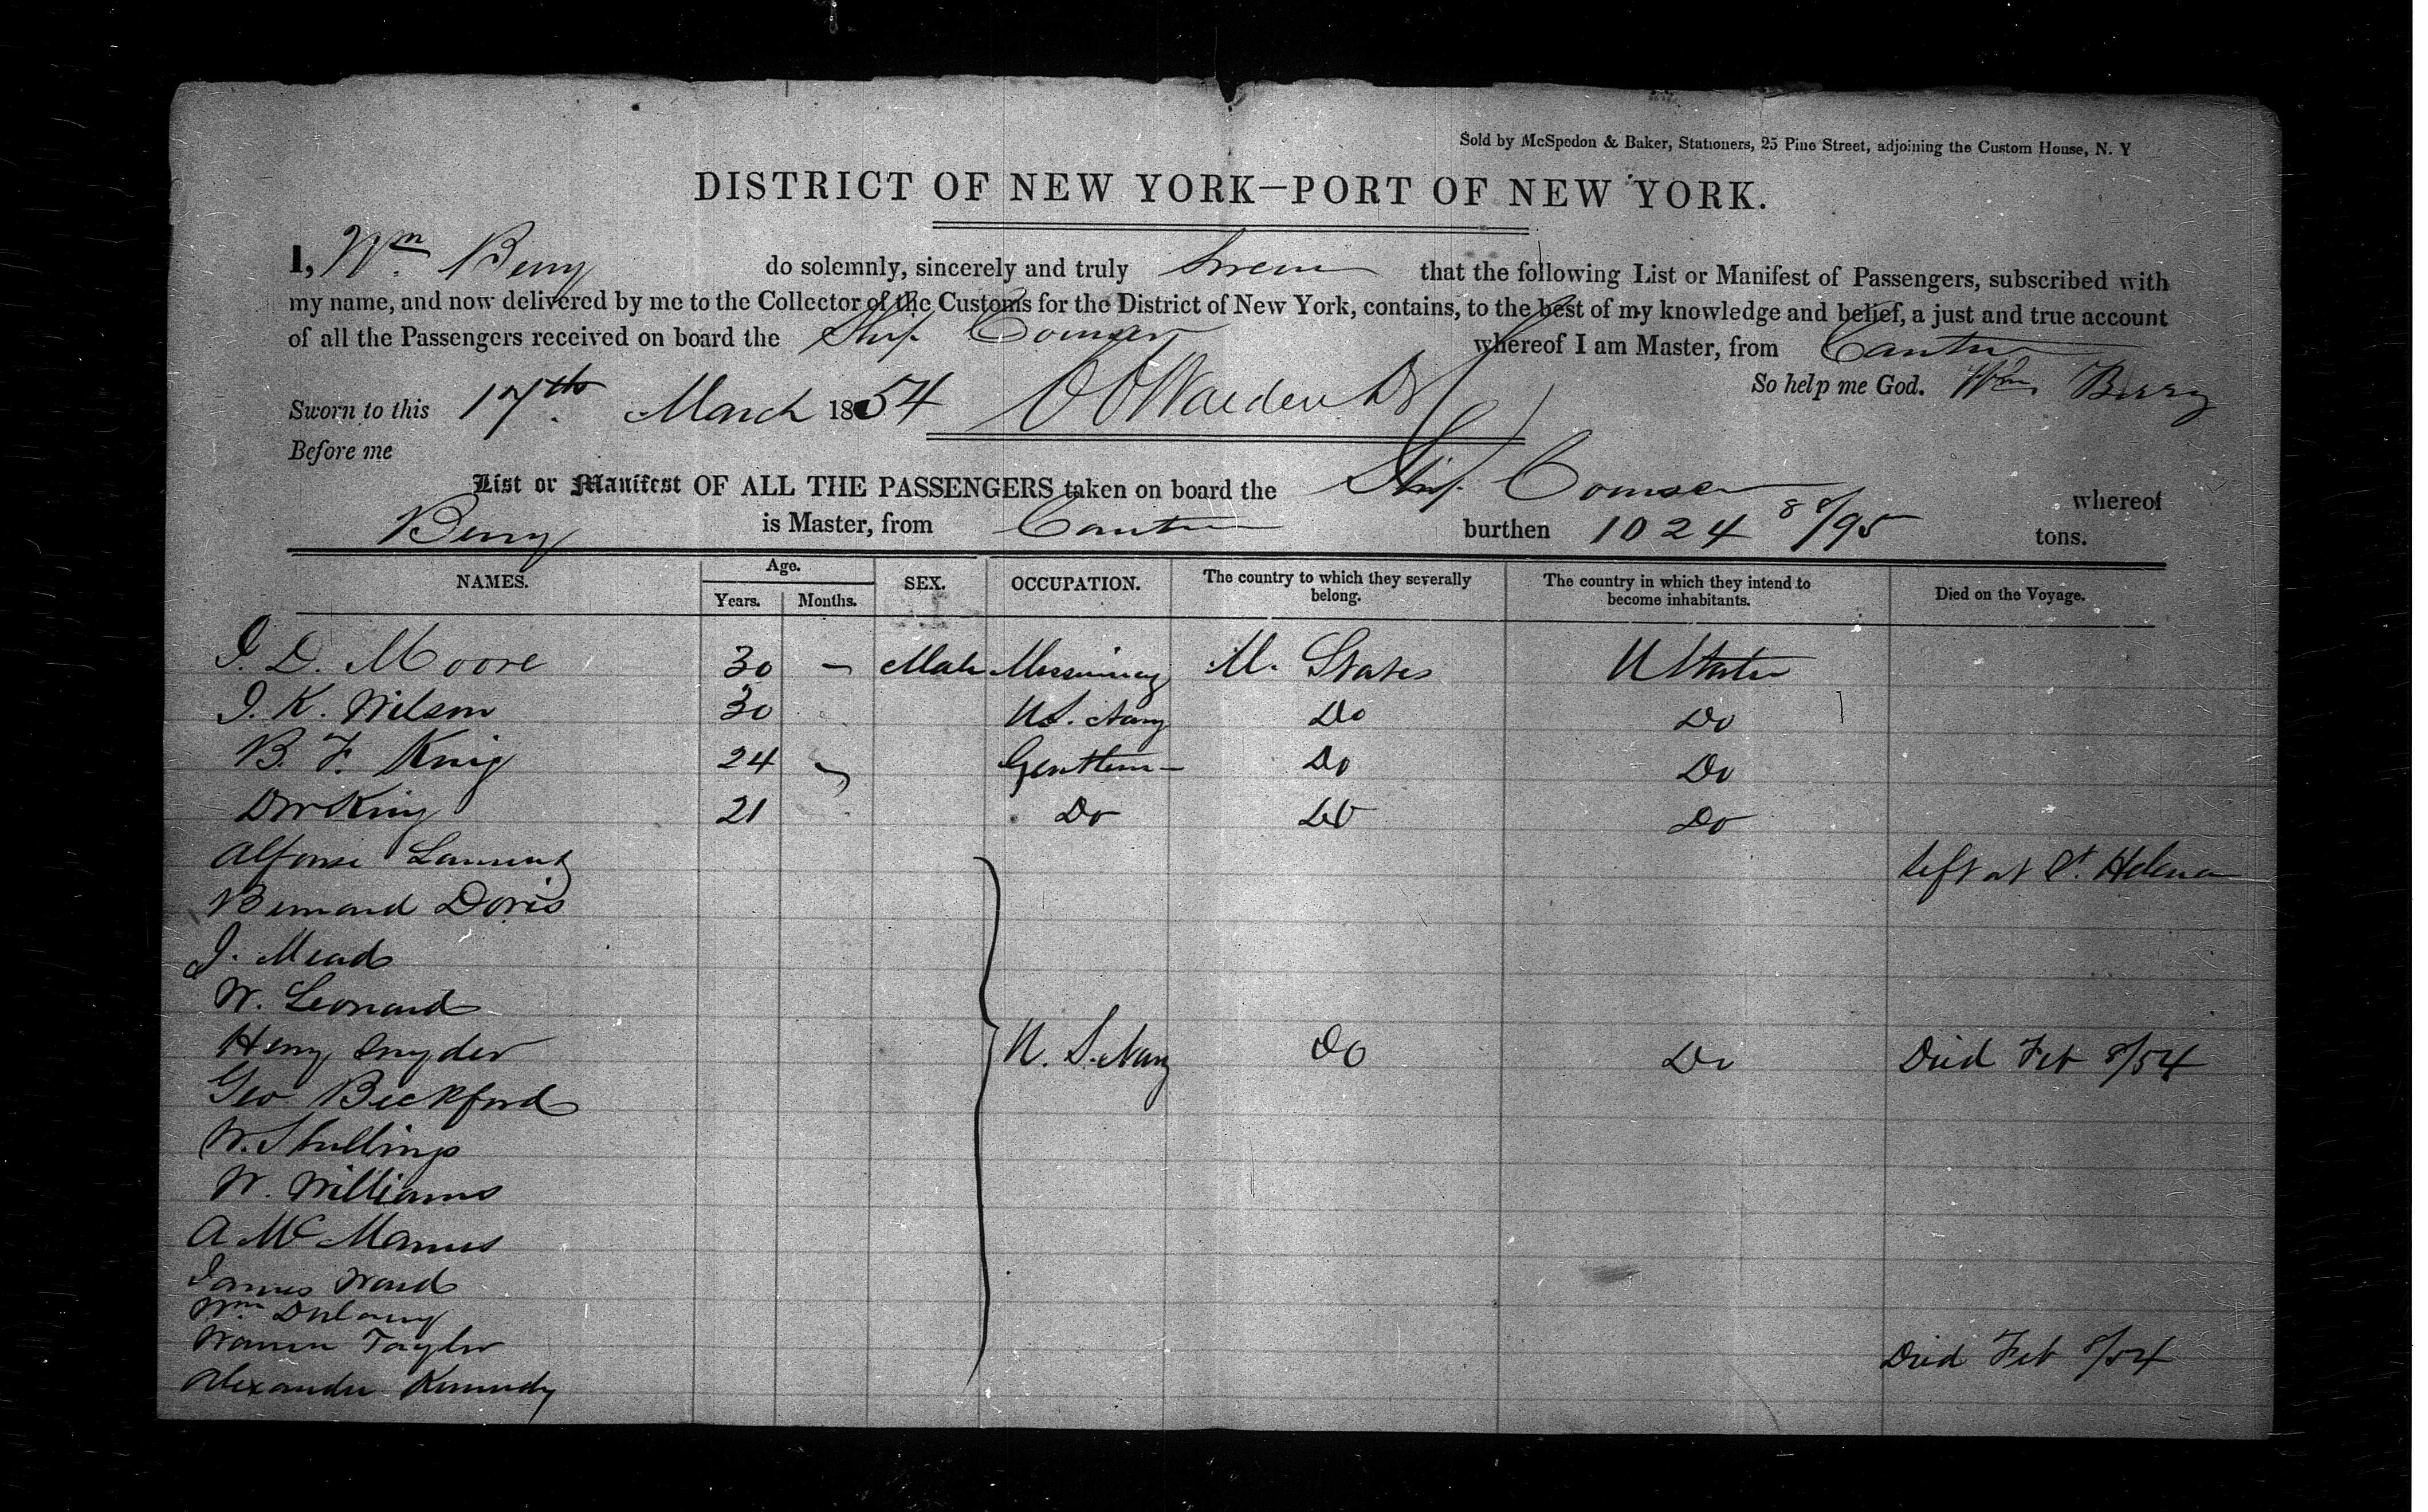 Sold by McSpedon & Baker, Stationers, 25 Pine Street, adjoining the Custom House, N. Y
DISTRICT OF NEW YORK—PORT OF NEW YORK.
I, Wm. Berry do solemnly, sincerely and truly swear that the following List or Manifest of Passengers, subscribed with
my name, and now delivered by me to the Collector of the Customs for the District of New York, contains, to the best of my knowledge and belief, a just and true account
of all the Passengers received on board the Ship whereof I am Master, from Canton
So help me God. Wm Berry
Sworn to this 17th March 1854
Before me
List or Manifest OF ALL THE PASSENGERS taken on board the Ship whereof
Berry is Master, from Canton burthen 1024 8/95 tons.
NAMES. Age. SEX. OCCUPATION. The country to which they severally belong. The country in which they intend to become inhabitants. Died on the Voyage.
Years. Months.
J. D. Moore 30 — Male Missionary U. States U States
J. K. Wilson 30 U.S. Navy Do Do
B. F. King 24 Gentlem— Do Do
DW King 21 Do Do Do
Alfonse left at St. Helena
Bernard Doris
J. Mead
W. Leonard
Henry Snyder U. S. Navy Do Do Died Feb 8/54
Geo Beckford
W. Stullings
W. Williams
A Mc Manus
James Ward
Wm Dulany
Warren Taylor Died Feb 8/54
Alexander Kennedy